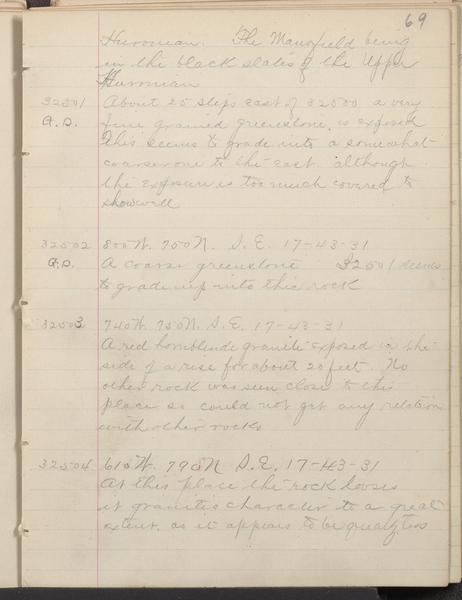 69
Huronian. The Mansfield being
in the black slates of the Upper
Huronian
32501 About 25 steps east of 32500 a very
A.S. fine grained greenstone, is exposed
This seems to grade into a somewhat
coarser one to the east. although
the exposure is too much covered to
show well
32502 800 W. 750 N. S.E. 17-43-31
A.S. A coarse greenstone 32501 seems
to grade up into this rock
32503 740 W. 750 N. S.E. 17-43-31
A red hornblende granite exposed in the
side of a rise for about 20 feet. No
other rock was seen close to this
place so could not get any relation
with other rocks
32504 610 W. 790 N S.E. 17-43-31
At this place the rock loses
it granitic character to a great
extent. as it appears to be